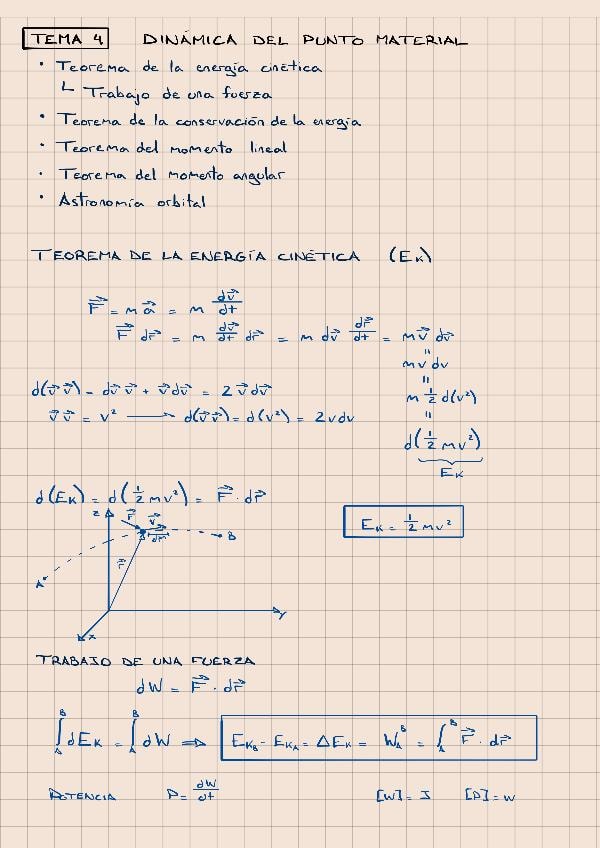 TEMA 4 DINÁMICA DEL PUNTO MATERIAL
• Teorema de la energía cinética
└ Trabajo de una fuerza
• Teorema de la conservación de la energía
• Teorema del momento lineal
• Teorema del momento angular
• Astronomía orbital
TEOREMA DE LA ENERGÍA CINÉTICA (Ek)
F⃗ = m a⃗ = m dv⃗/dt
F⃗ dr⃗ = m dv⃗/dt dr⃗ = m dv⃗ dr⃗/dt = mv⃗ dv⃗
"
mv dv
"
d(v⃗v⃗) = dv⃗ v⃗ + v⃗dv⃗ = 2v⃗dv⃗
m 1/2 d(v²)
"
v⃗v⃗ = v² → d(v⃗v⃗) = d(v²) = 2vdv
d(1/2 mv²)
Ek
d(Ek) = d(1/2 mv²) = F⃗ · dr⃗
Ek = 1/2 mv²
z F⃗ v⃗
dr⃗ B
r⃗
A
y
x
TRABAJO DE UNA FUERZA
dW = F⃗ · dr⃗
∫_A^B dEk = ∫_A^B dW ⇒ Ek_B - Ek_A = ΔEk = W_A^B = ∫_A^B F⃗ · dr⃗
POTENCIA P = dW/dt [W] = J [P] = W